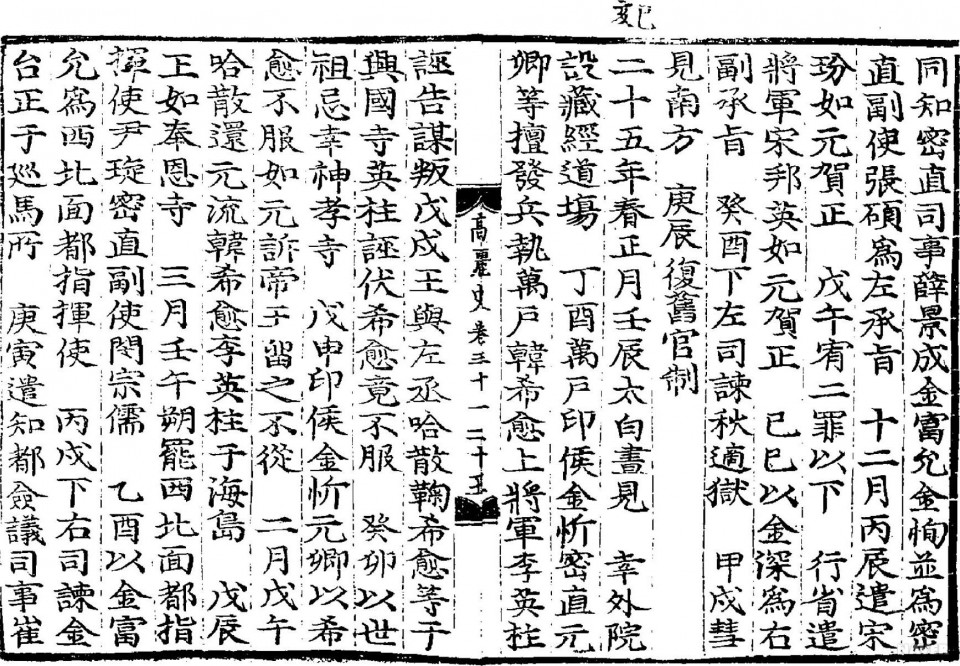 己亥
同知密直司事薛景成金富允金恂並爲密
直副使張碩爲左承旨　十二月丙辰遣宋
玢如元賀正　戊午宥二罪以下　行省遣
將軍宋邦英如元賀正　己巳以金深爲右
副承旨　癸酉下左司諫秋適獄　甲戌彗
見南方　庚辰復舊官制
二十五年春正月壬辰太白晝見　幸外院
設藏經道場　丁酉萬戶印侯金忻密直元
卿等擅發兵執萬戶韓希愈上將軍李英柱
高麗史卷三十一　二十五
誣告謀叛戊戌王與左丞哈散鞠希愈等于
興國寺英柱誣伏希愈竟不服　癸卯以世
祖忌幸神孝寺　戊申印侯金忻元卿以希
愈不服如元訴帝王留之不從　二月戊午
哈散還元流韓希愈李英柱于海島　戊辰
王如奉恩寺　三月壬午朔罷西北面都指
揮使尹琁密直副使閔宗儒　乙酉以金富
允爲西北面都指揮使　丙戌下右司諫金
台正于廵馬所　庚寅遣知都僉議司事崔